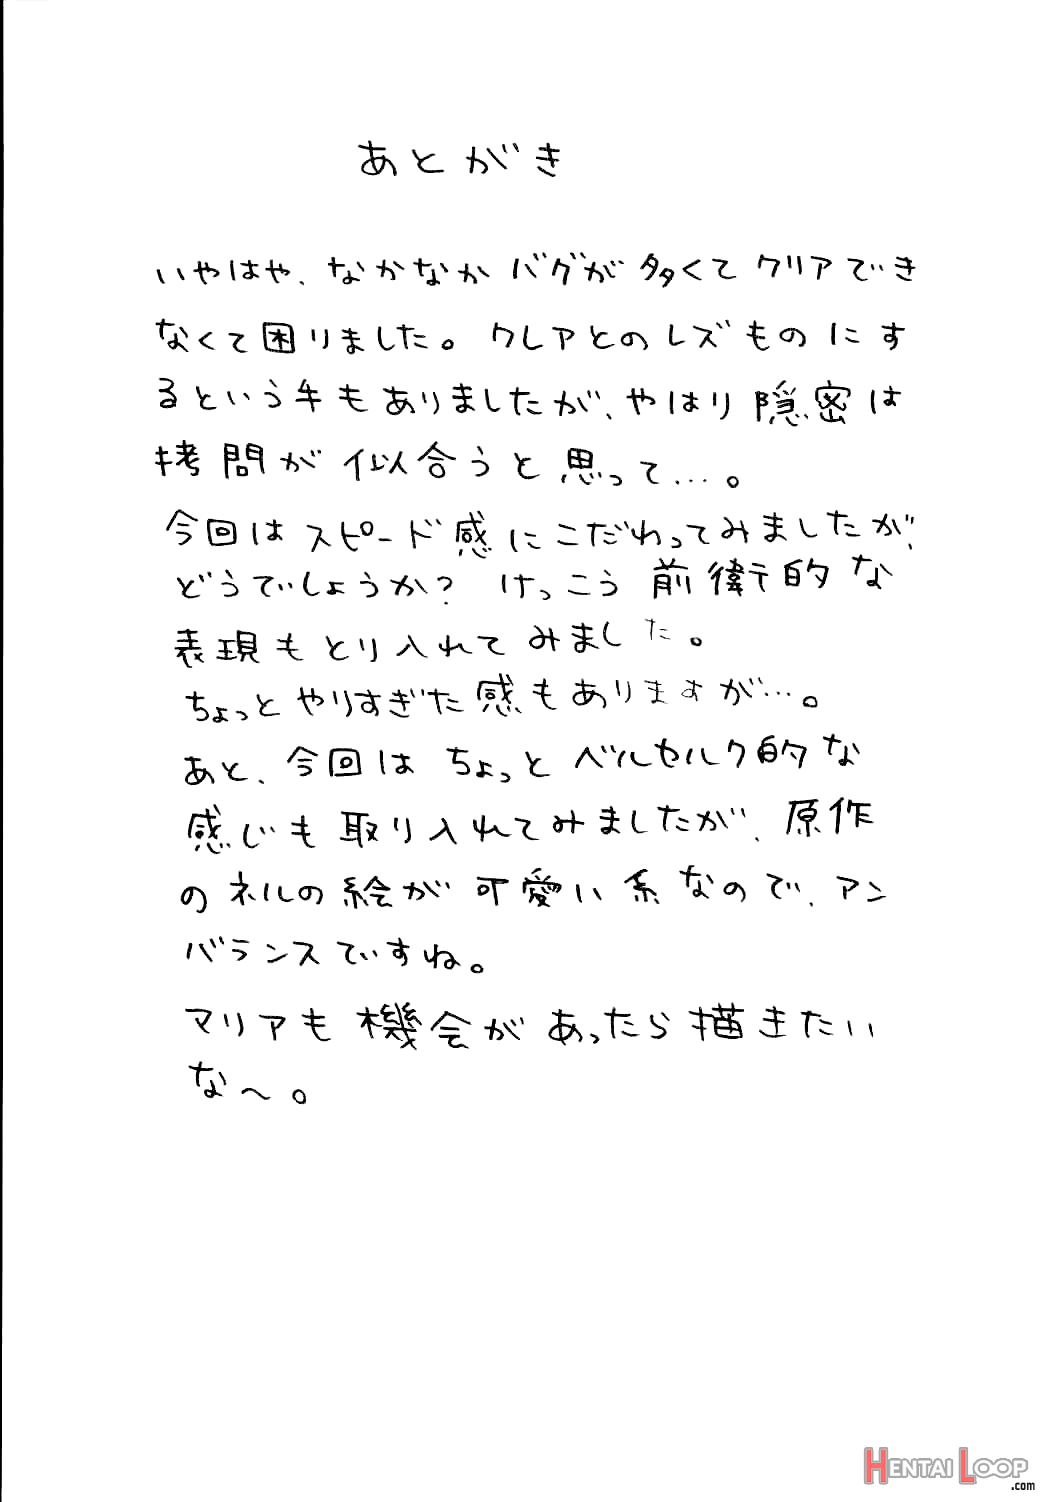 あとがき
いやはや、なかなかバグが多くてクリアでき
なくて困りました。クレアとのレズものにす
るという手もありましたが、やはり隠密は
拷問が似合うと思って…。
今回はスピード感にこだわってみましたが、
どうでしょうか？ けっこう前衛的な
表現もとり入れてみました。
ちょっとやりすぎた感もありますが…。
あと、今回はちょっとベルセルク的な
感じも取り入れてみましたが、原作
のネルの絵が可愛い系なので、アン
バランスですね。
マリアも機会があったら描きたい
な〜。
HENTAI LOOP
.com